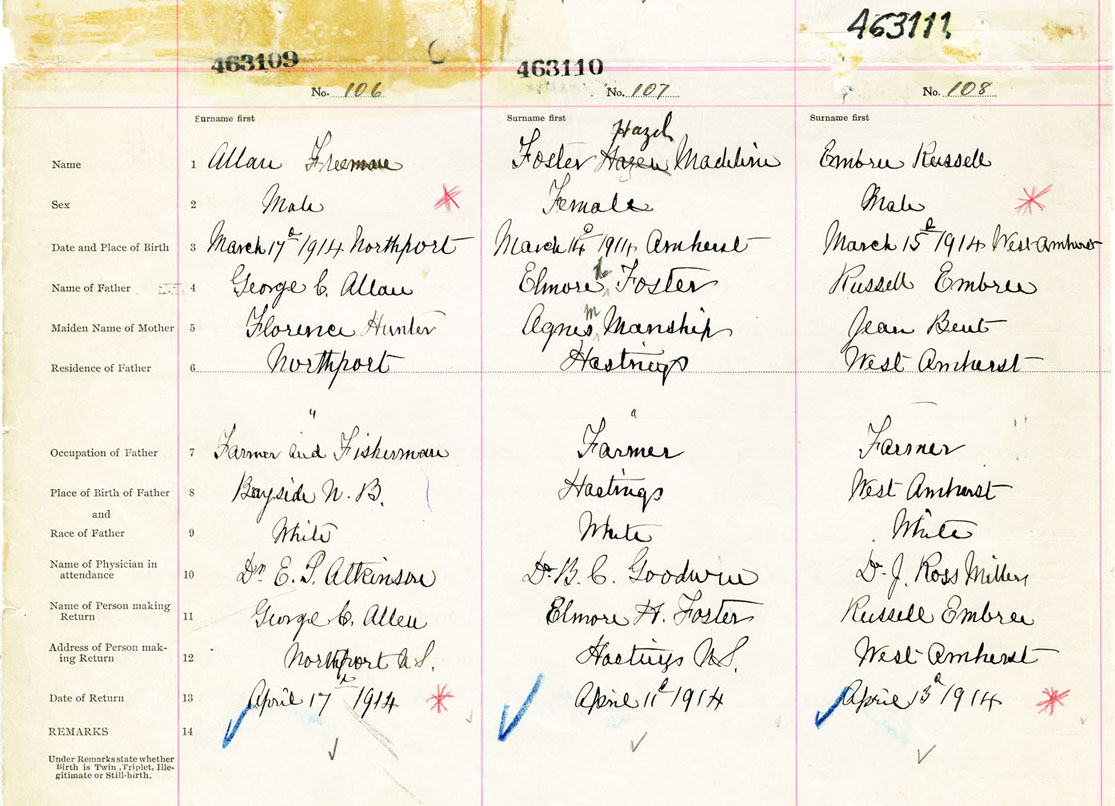 463109
463110
463111
No. 106
No. 107
No. 108
Surname first
Surname first
Surname first
Name 1 Allan Freeman
Hazel
Foster Hazen Madeline
Embree Russell
Sex 2 Male
Female
Male
Date and Place of Birth 3 March 17th 1914 Northport
March 14th 1914 Amherst
March 15th 1914 West Amherst
Name of Father 4 George C. Allan
Elmore H. Foster
Russell Embree
Maiden Name of Mother 5 Florence Hunter
Agnes M Manship
Jean Bent
Residence of Father 6 Northport
Hastings
West Amherst
" "
Occupation of Father 7 Farmer and Fisherman
Farmer
Farmer
Place of Birth of Father 8 Bayside N. B.
Hastings
West Amherst
and
Race of Father 9 White
White
White
Name of Physician in
attendance 10 Dr. E. P. Atkinson
Dr. B. C. Goodwin
Dr. J. Ross Millen
Name of Person making
Return 11 George C. Allen
Elmore H. Foster
Russell Embree
Address of Person mak-
ing Return 12 Northport N.S.
Hastings N.S.
West Amherst
Date of Return 13 April 17th 1914
April 11th 1914
April 13th 1914
REMARKS 14
Under Remarks state whether
Birth is Twin, Triplet, Ille-
gitimate or Still-birth.